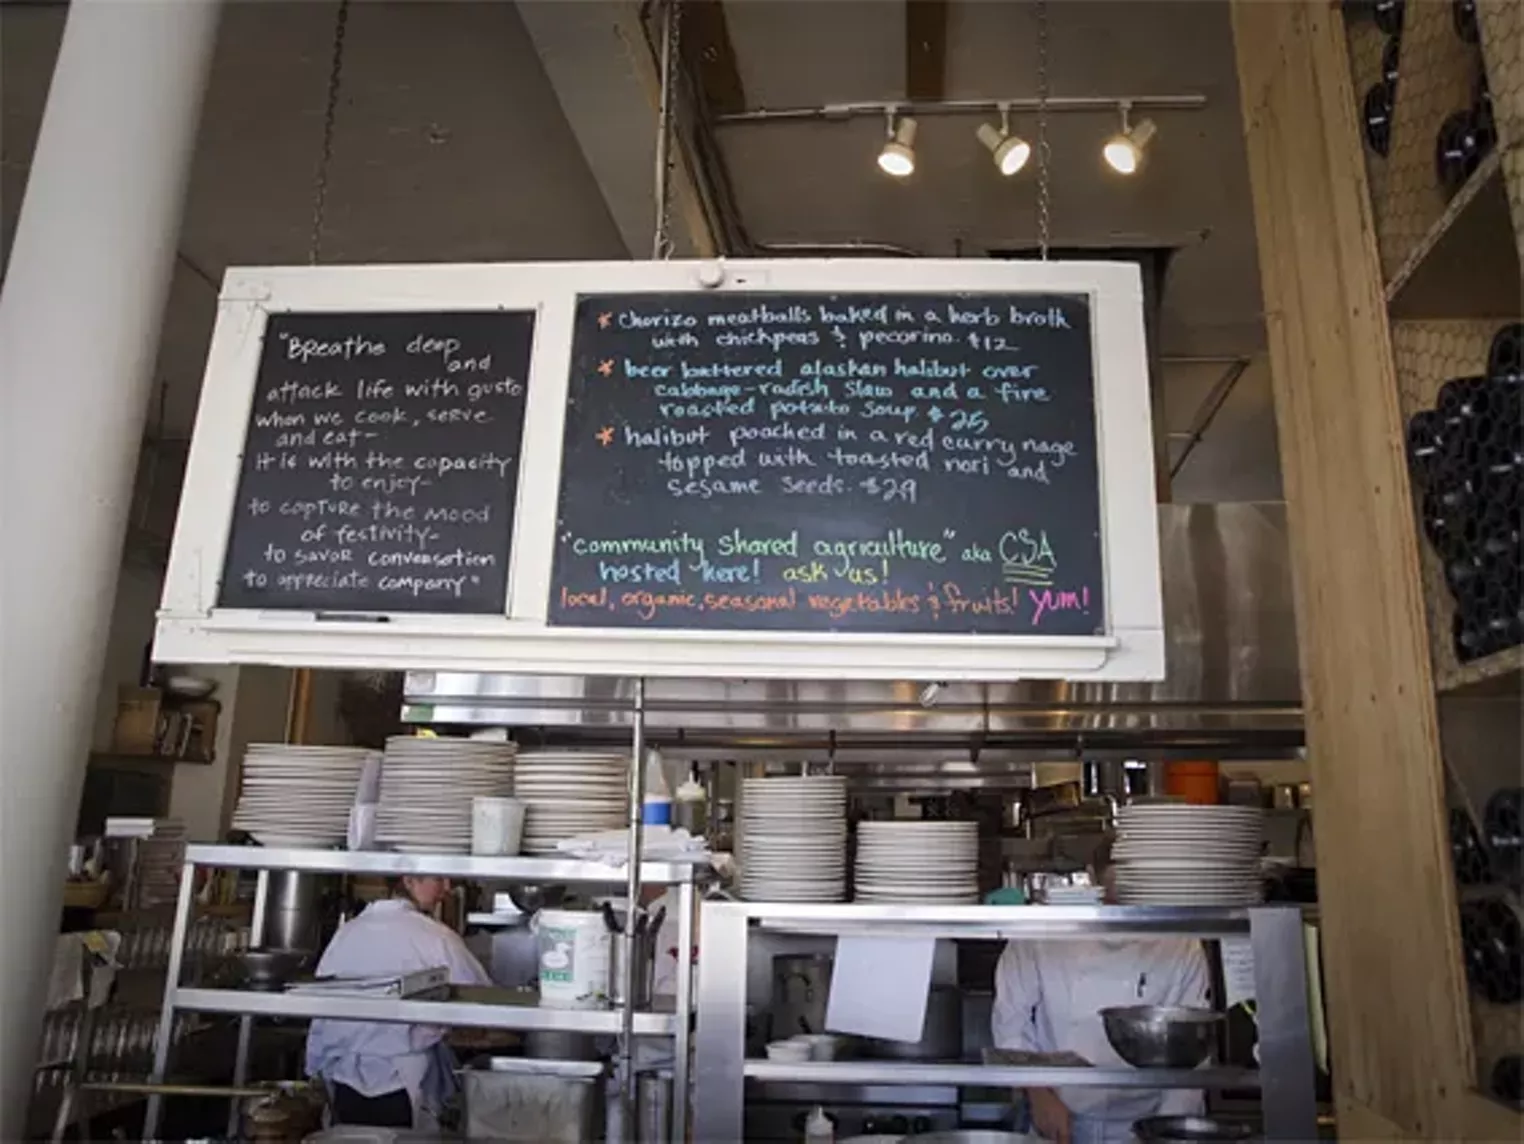 "Breathe deep
and
attack life with gusto
when we cook, serve
and eat-
it is with the capacity
to enjoy-
to capture the mood
of festivity-
to savor conversation
to appreciate company"
* chorizo meatballs baked in a herb broth
with chickpeas & pecorino. $12
* beer battered alaskan halibut over
cabbage-radish slaw and a fire
roasted potato soup $25
* halibut poached in a red curry nage
topped with toasted nori and
sesame seeds. $29
"community shared agriculture" aka CSA
hosted here! ask us!
local, organic, seasonal vegetables & fruits! yum!